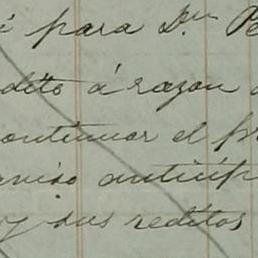 para Dn Pe
dito á razon
continuar el pr
aviso anticip
y sus reditos